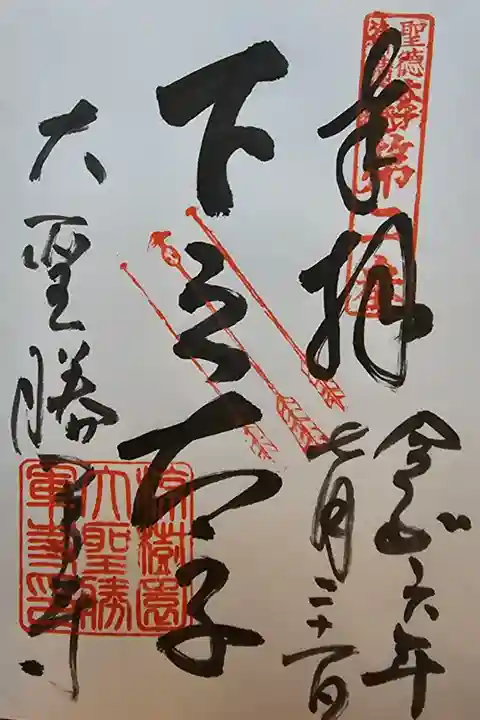 聖徳太子
奉拝
令和六年
七月二十一日
下之太子
大聖勝軍寺
椋樹園
大聖勝
軍寺印